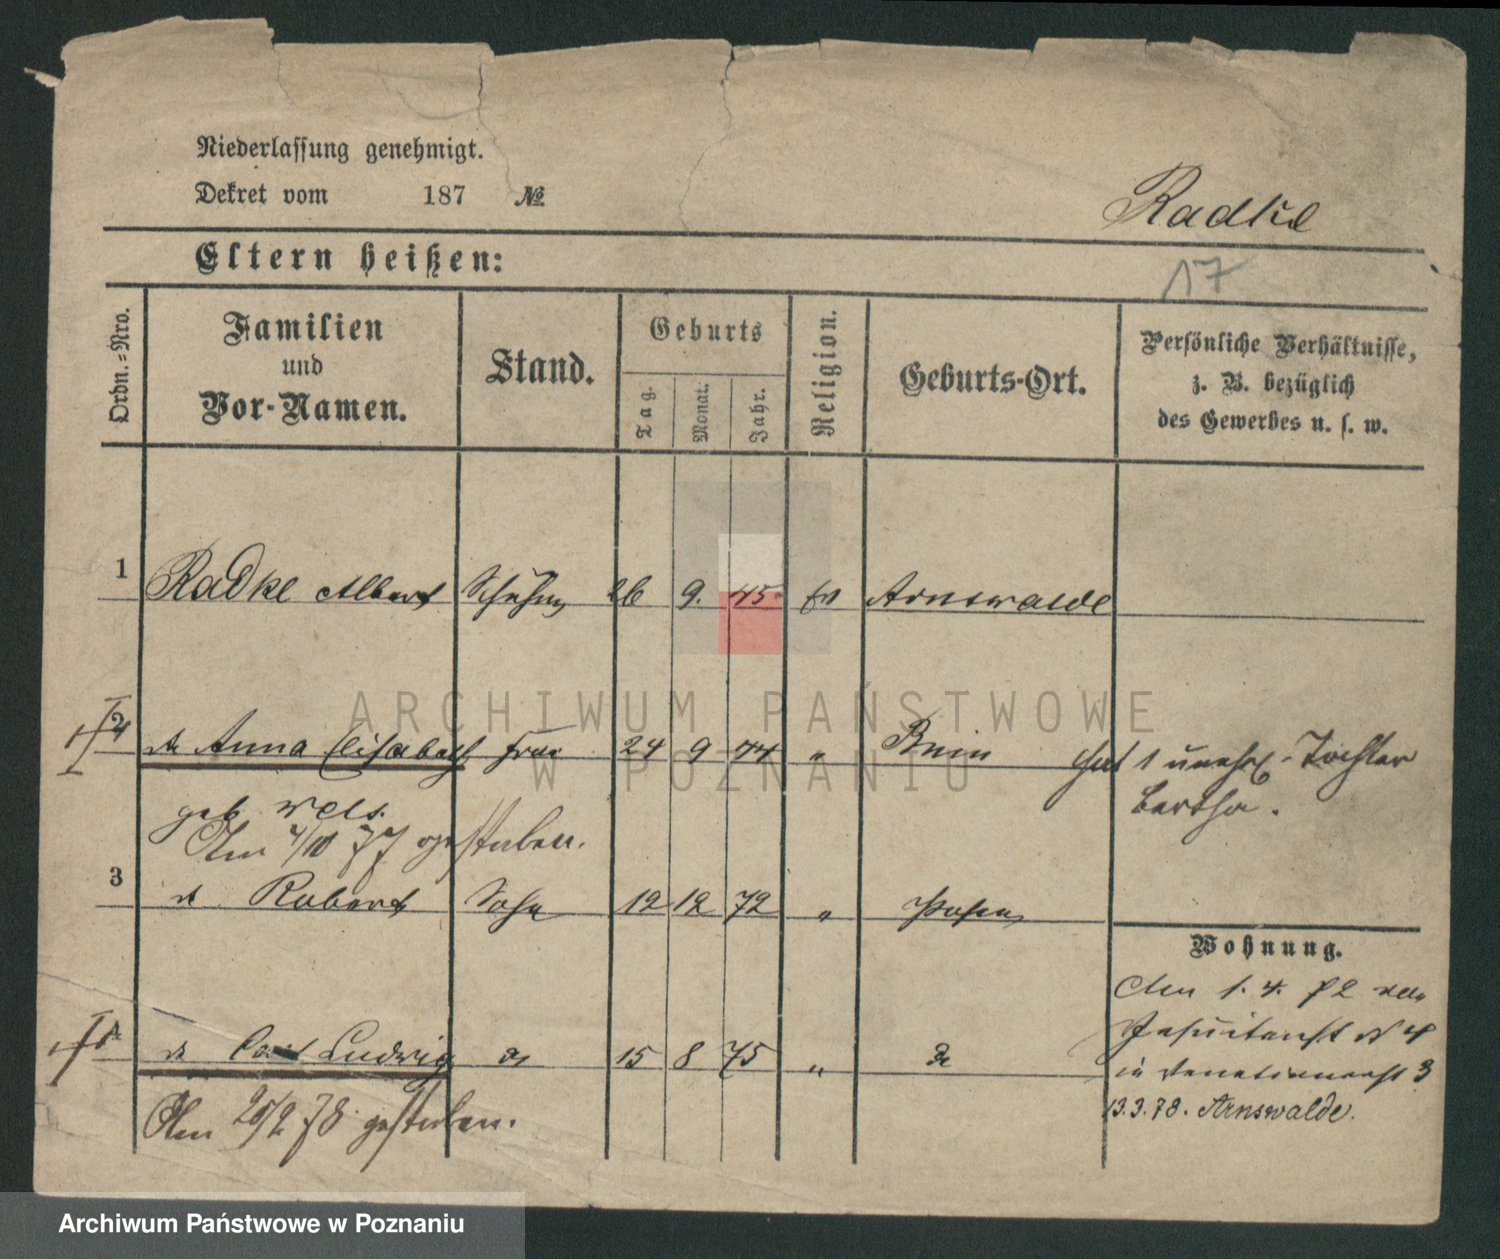 Niederlassung genehmigt.
Dekret vom 187 №
Radke
Eltern heißen:
17
Ordn.-Nro.
Familien
und
Vor-Namen.
Stand.
Geburts
Tag.
Monat.
Jahr.
Religion.
Geburts-Ort.
Persönliche Verhältnisse,
z. B. bezüglich
des Gewerbes u. s. w.
1 Radke Albert Schuhm 26 9. 45 ev Arnswalde
2 Anna Elisabeth Frau 24 9 44 " Bnin hat 1 unehel. Tochter
Bertha.
geb. Wels.
Am 4/10 77 gestorben.
3 Robert Sohn 12 12 72 " Posen
Wohnung.
Am 1. 4. 72 von
Jesuitenst No 4
in Venetianerst 3
4 Carl Ludwig 15 8 75 "
13.3.78. Arnswalde.
Am 20/2 78 gestorben.
ARCHIWUM PAŃSTWOWE
W POZNANIU
Archiwum Państwowe w Poznaniu